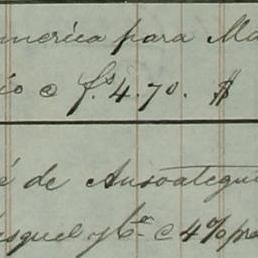 merica para Ma
io @ fs. 4.70. $
é de Ansoategui
squel y Ca @ 4%